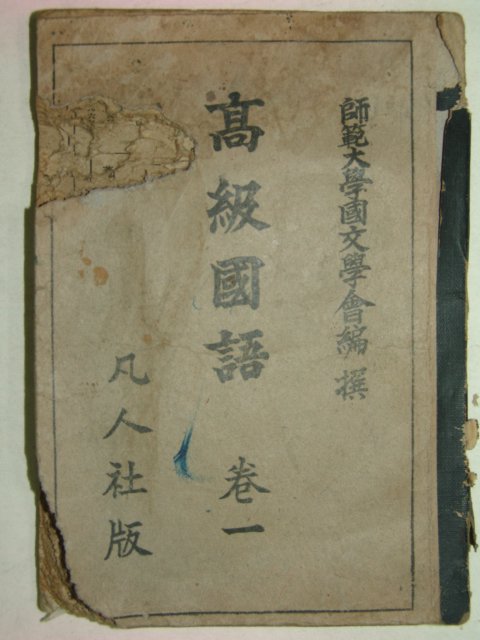 師範大學國文學會編撰
高級國語 卷一
凡人社版